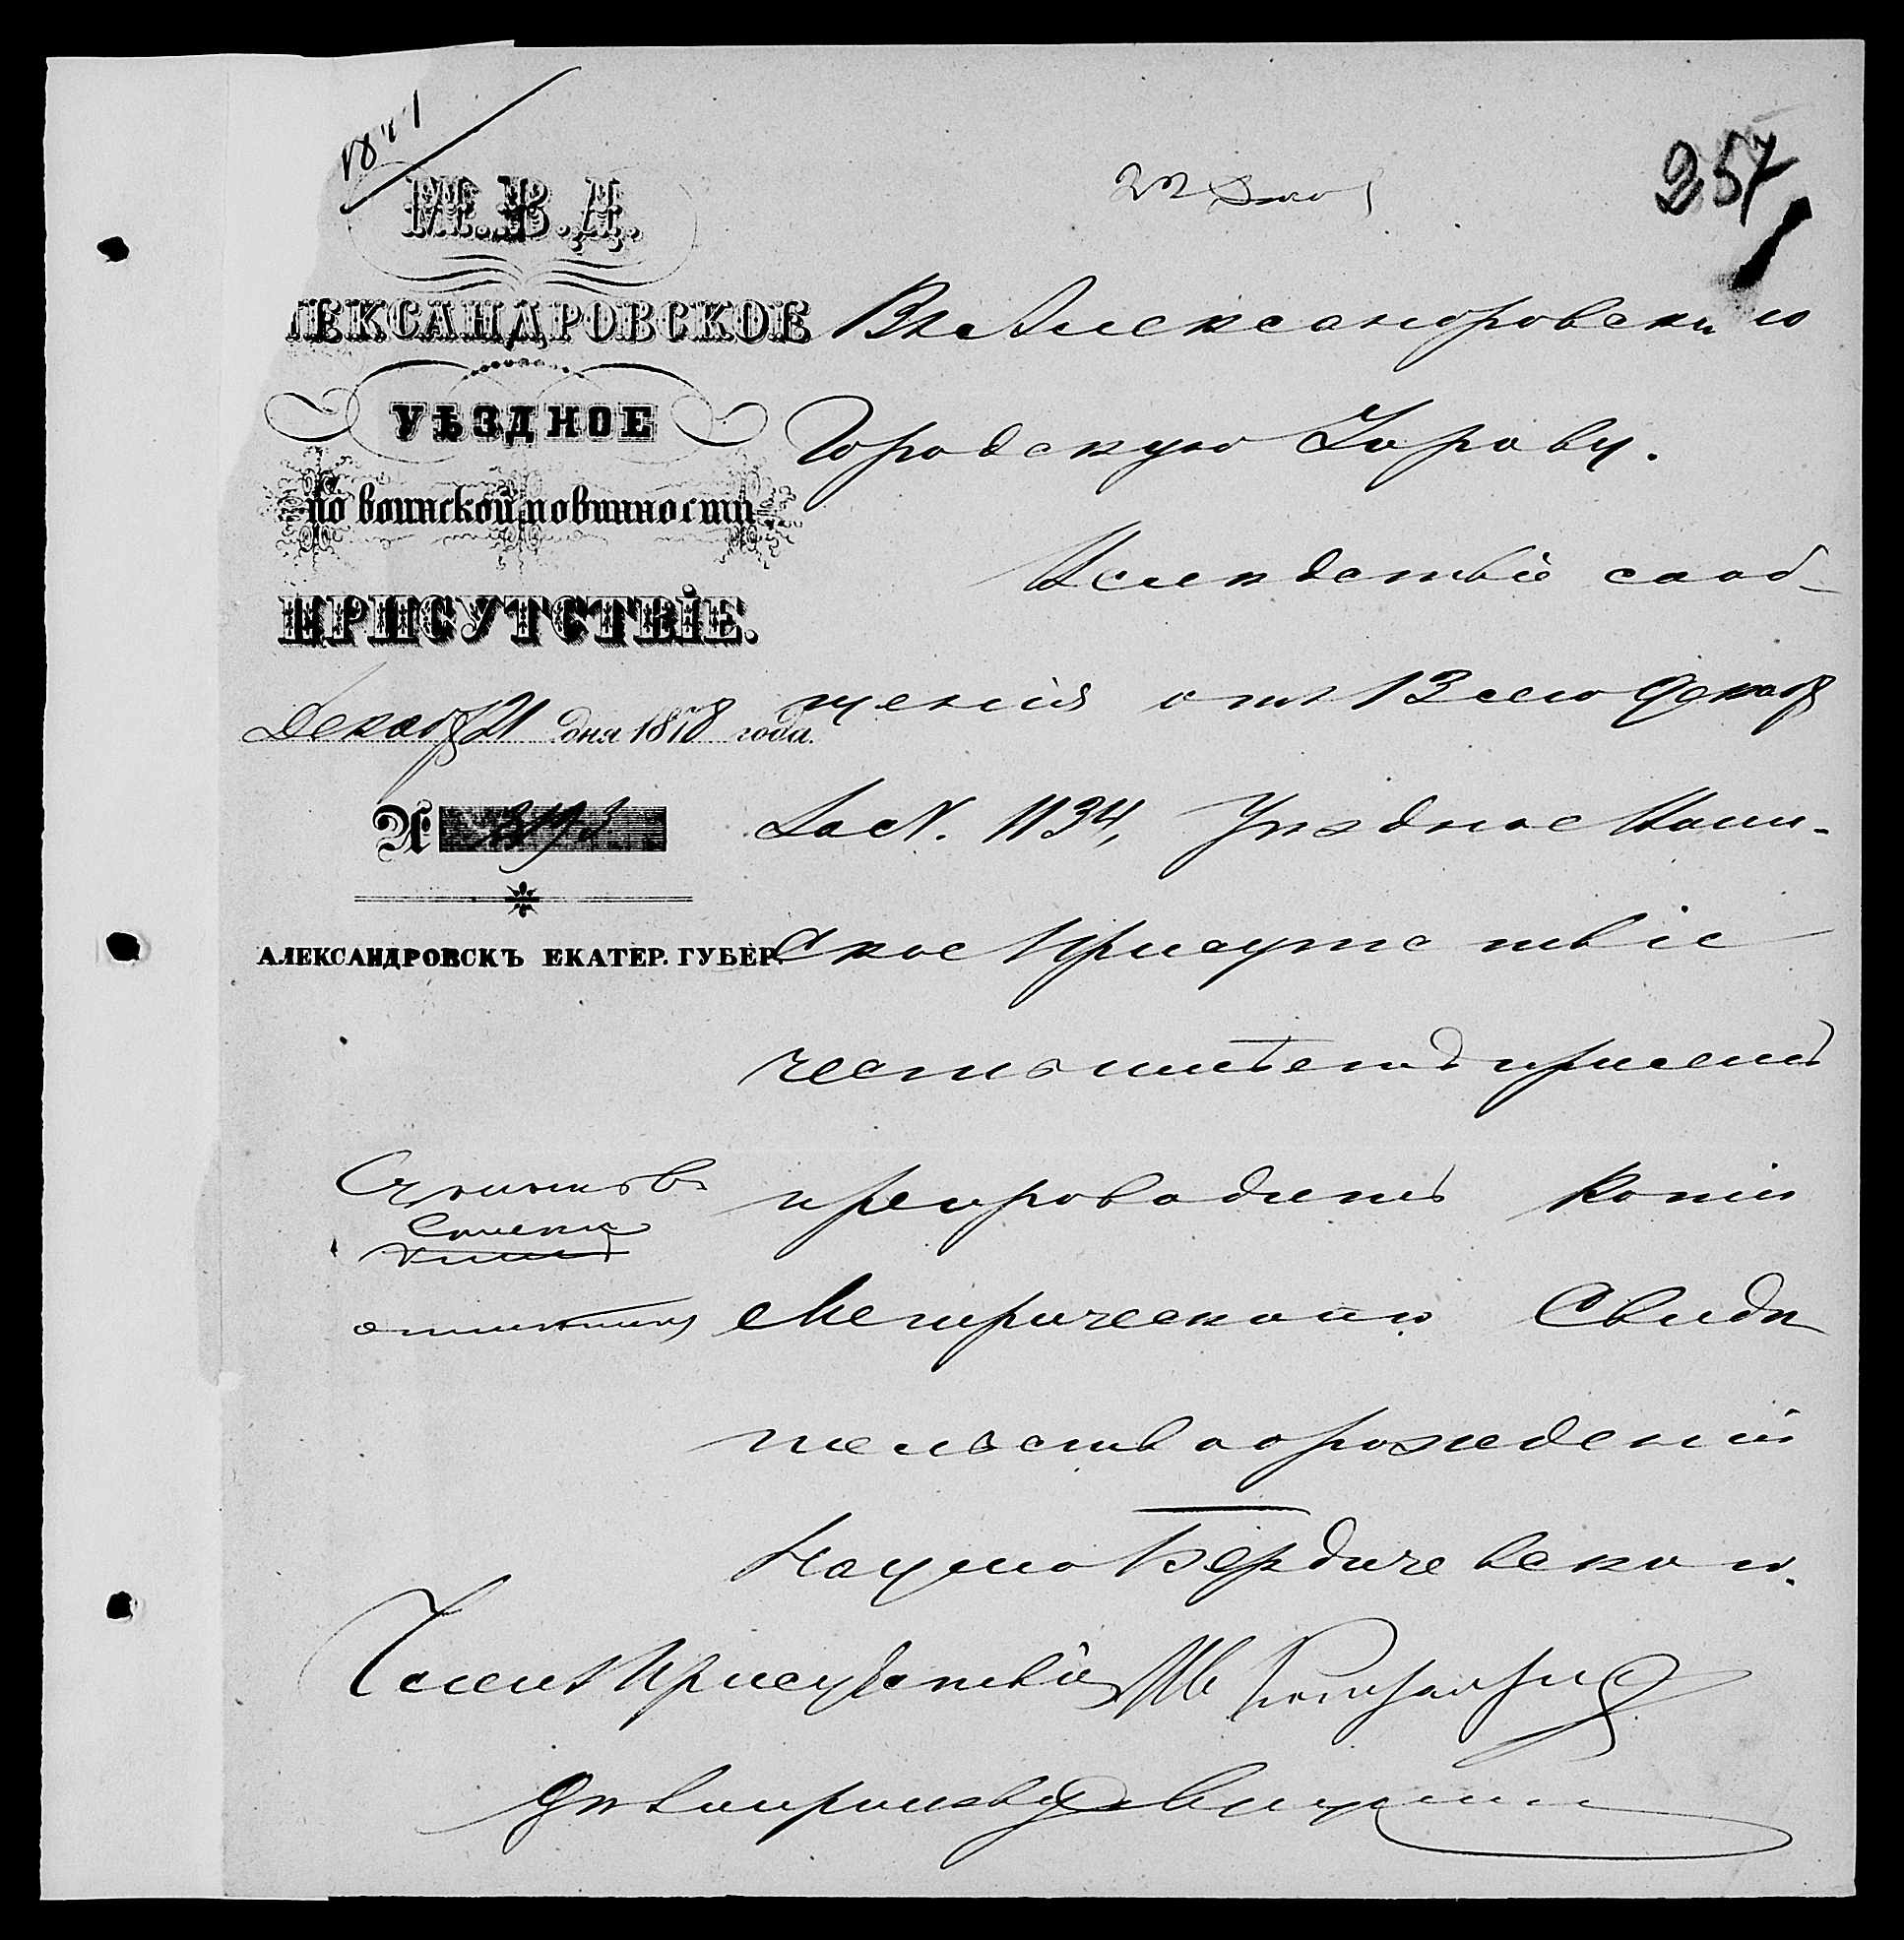 257
22 Дек
М.В.Д.
ЛЕКСАНДРОВСКОЕ
УѢЗДНОЕ
по воинской повинности
ПРИСУТСТВІЕ.
Декабр 21 дня 1878 года.
№
АЛЕКСАНДРОВСКЪ ЕКАТЕР. ГУБЕР.
Въ Александровскую
Городскую Управу.
Вслѣдствіе сооб-
щенія отъ 13 сего Декабр
за N. 1134, Уѣздное Воин-
ское Присутствіе
честь имѣетъ при семъ
препроводить копію
Метрическаго Свидѣ
тельства о рожденіи
Наума Бердичевскаго.
отмѣтить
Членъ Присутствія
Дѣлопроизвод